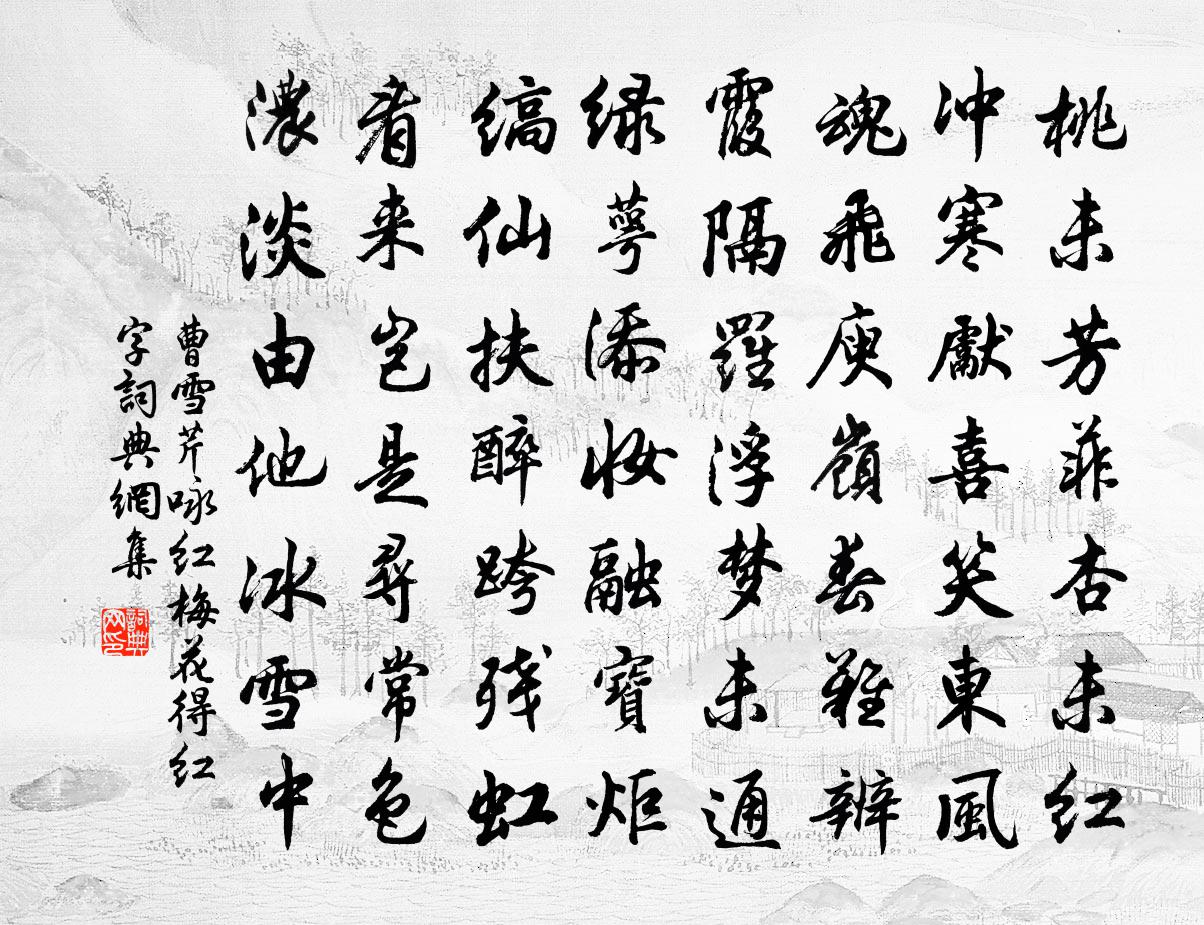 桃未芳菲杏未红
冲寒獻喜笑東風
魂飛庾嶺春難辨
霞隔羅浮梦未通
绿萼添妆融寶炬
缟仙扶醉跨残虹
看来岂是尋常色
濃淡由他冰雪中
曹雪芹咏红梅花得红
字詞典網集
詞典网印